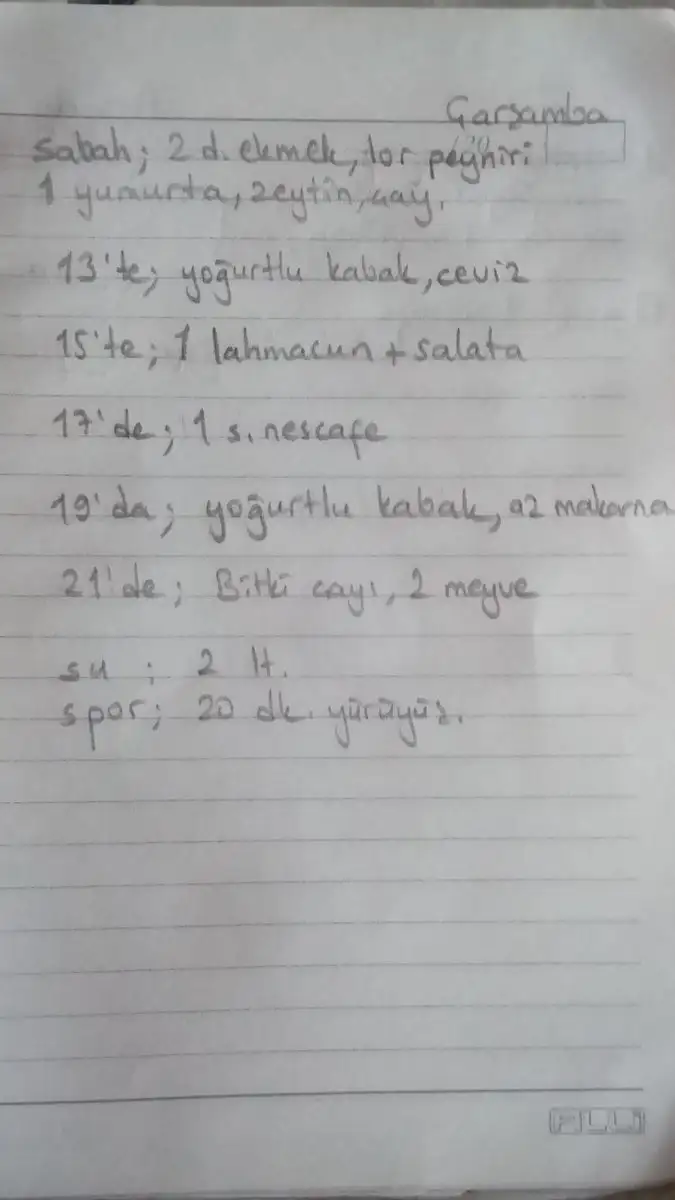 Çarşamba
Sabah; 2 d. ekmek, tor peyniri
1 yumurta, zeytin, çay.
13'te; yoğurtlu kabak, ceviz
15'te; 1 lahmacun + salata
17'de; 1 s. nescafe
19'da; yoğurtlu kabak, az makarna
21'de; Bitki çayı, 2 meyve
su ; 2 lt.
spor; 20 dk. yürüyüş.